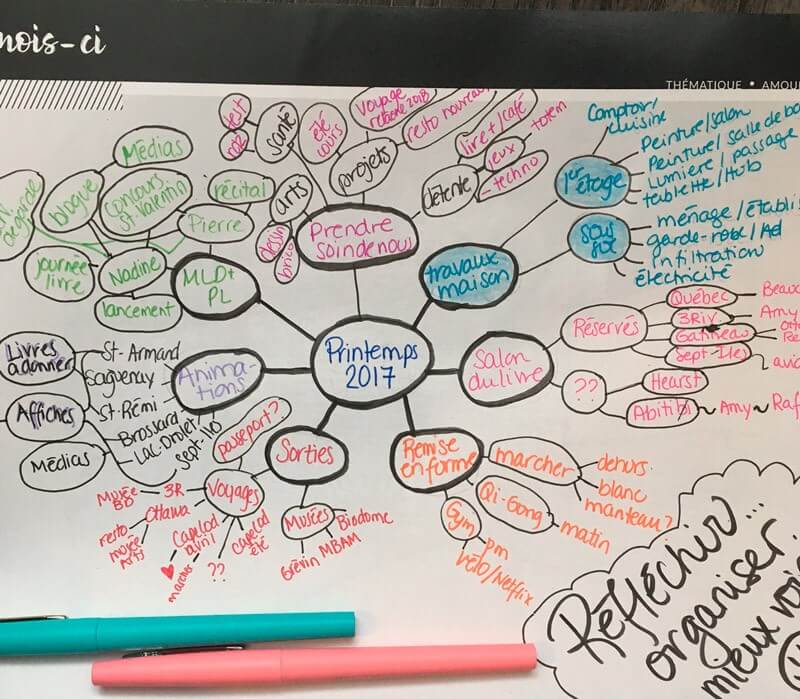 mois-ci
THÉMATIQUE • AMOU
Printemps
2017
Prendre
soin de nous
santé
arts
dessin
brico
été
cours
projets
voyage
octobre 2018
resto nouveau
détente
lire + / café
jeux
techno
totem
travaux
maison
1er
étage
Comptoir/
cuisine
Peinture/salon
Peinture/salle de ba
Lumière/passage
tablette/Hub
sous
sol
ménage/Établi
garde-robe/Ad
Infiltration
électricité
Salon
du livre
Réservés
Québec
Beauc
3Riv.
Amy
Gatineau
Sept-Iles
avio
??
Hearst
Abitibi
Amy ~ Raf
Remise
en forme
marcher
dehors.
blanc
manteau?
Qi-Gong
matin
Gym
pm
vélo/Netflix
Sorties
Musées
Biodome
MBAM
Grévin
Voyages
passeport?
3R
Musée
BD
Ottawa
resto
Arts
Cape Cod
avril
marcher
??
Cape Cod
été
Anima-
tions
Livres
à donner
Affiches
Médias
St-Armand
Saguenay
St-Rémi
Brossard
Lac-Drolet
MLD+
PL
Pierre
récital
Concours
St-Valentin
Médias
blogue
de garde
journée
livre
Nadine
lancement
Réfléchir...
organiser...
mieux